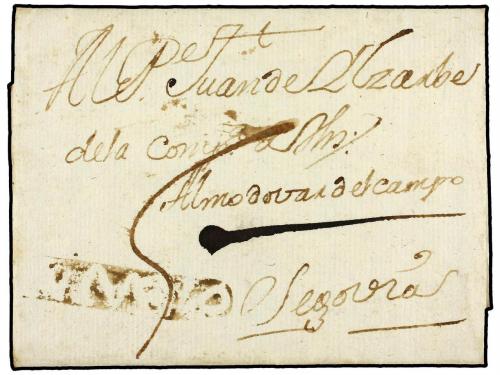 Al Pe. Juan de Lizarbe
dela Comp.a de Jhs.
Almodovar del campo
5
Segovia